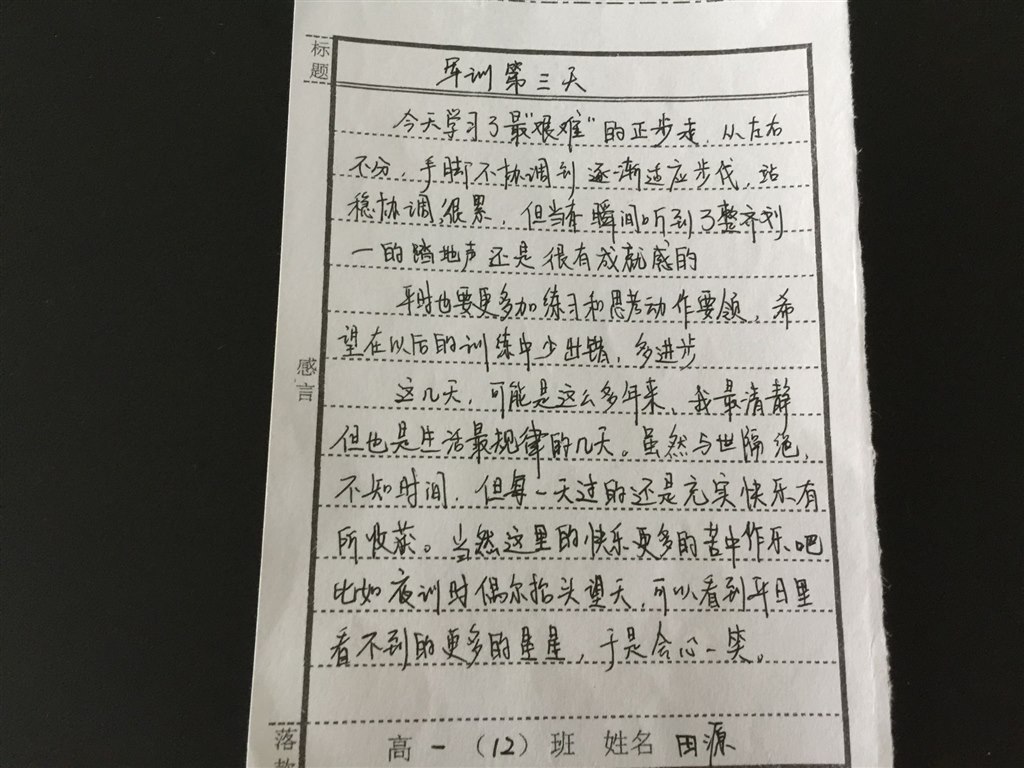 标题
军训第三天
今天学习了最"艰难"的正步走，从左右
不分，手脚不协调到逐渐适应步伐，站
稳协调很累，但当在瞬间听到了整齐划
一的踏地声还是很有成就感的
平时也要更多加练习和思考动作要领，希
望在以后的训练中少出错，多进步
感言
这几天，可能是这么多年来，我最清静
但也是生活最规律的几天。虽然与世隔绝，
不知时间，但每一天过的还是充实快乐有
所收获。当然这里的快乐更多的苦中作乐吧
比如夜训时偶尔抬头望天，可以看到平日里
看不到的更多的星星，于是会心一笑。
落款
高一（12）班 姓名 田源